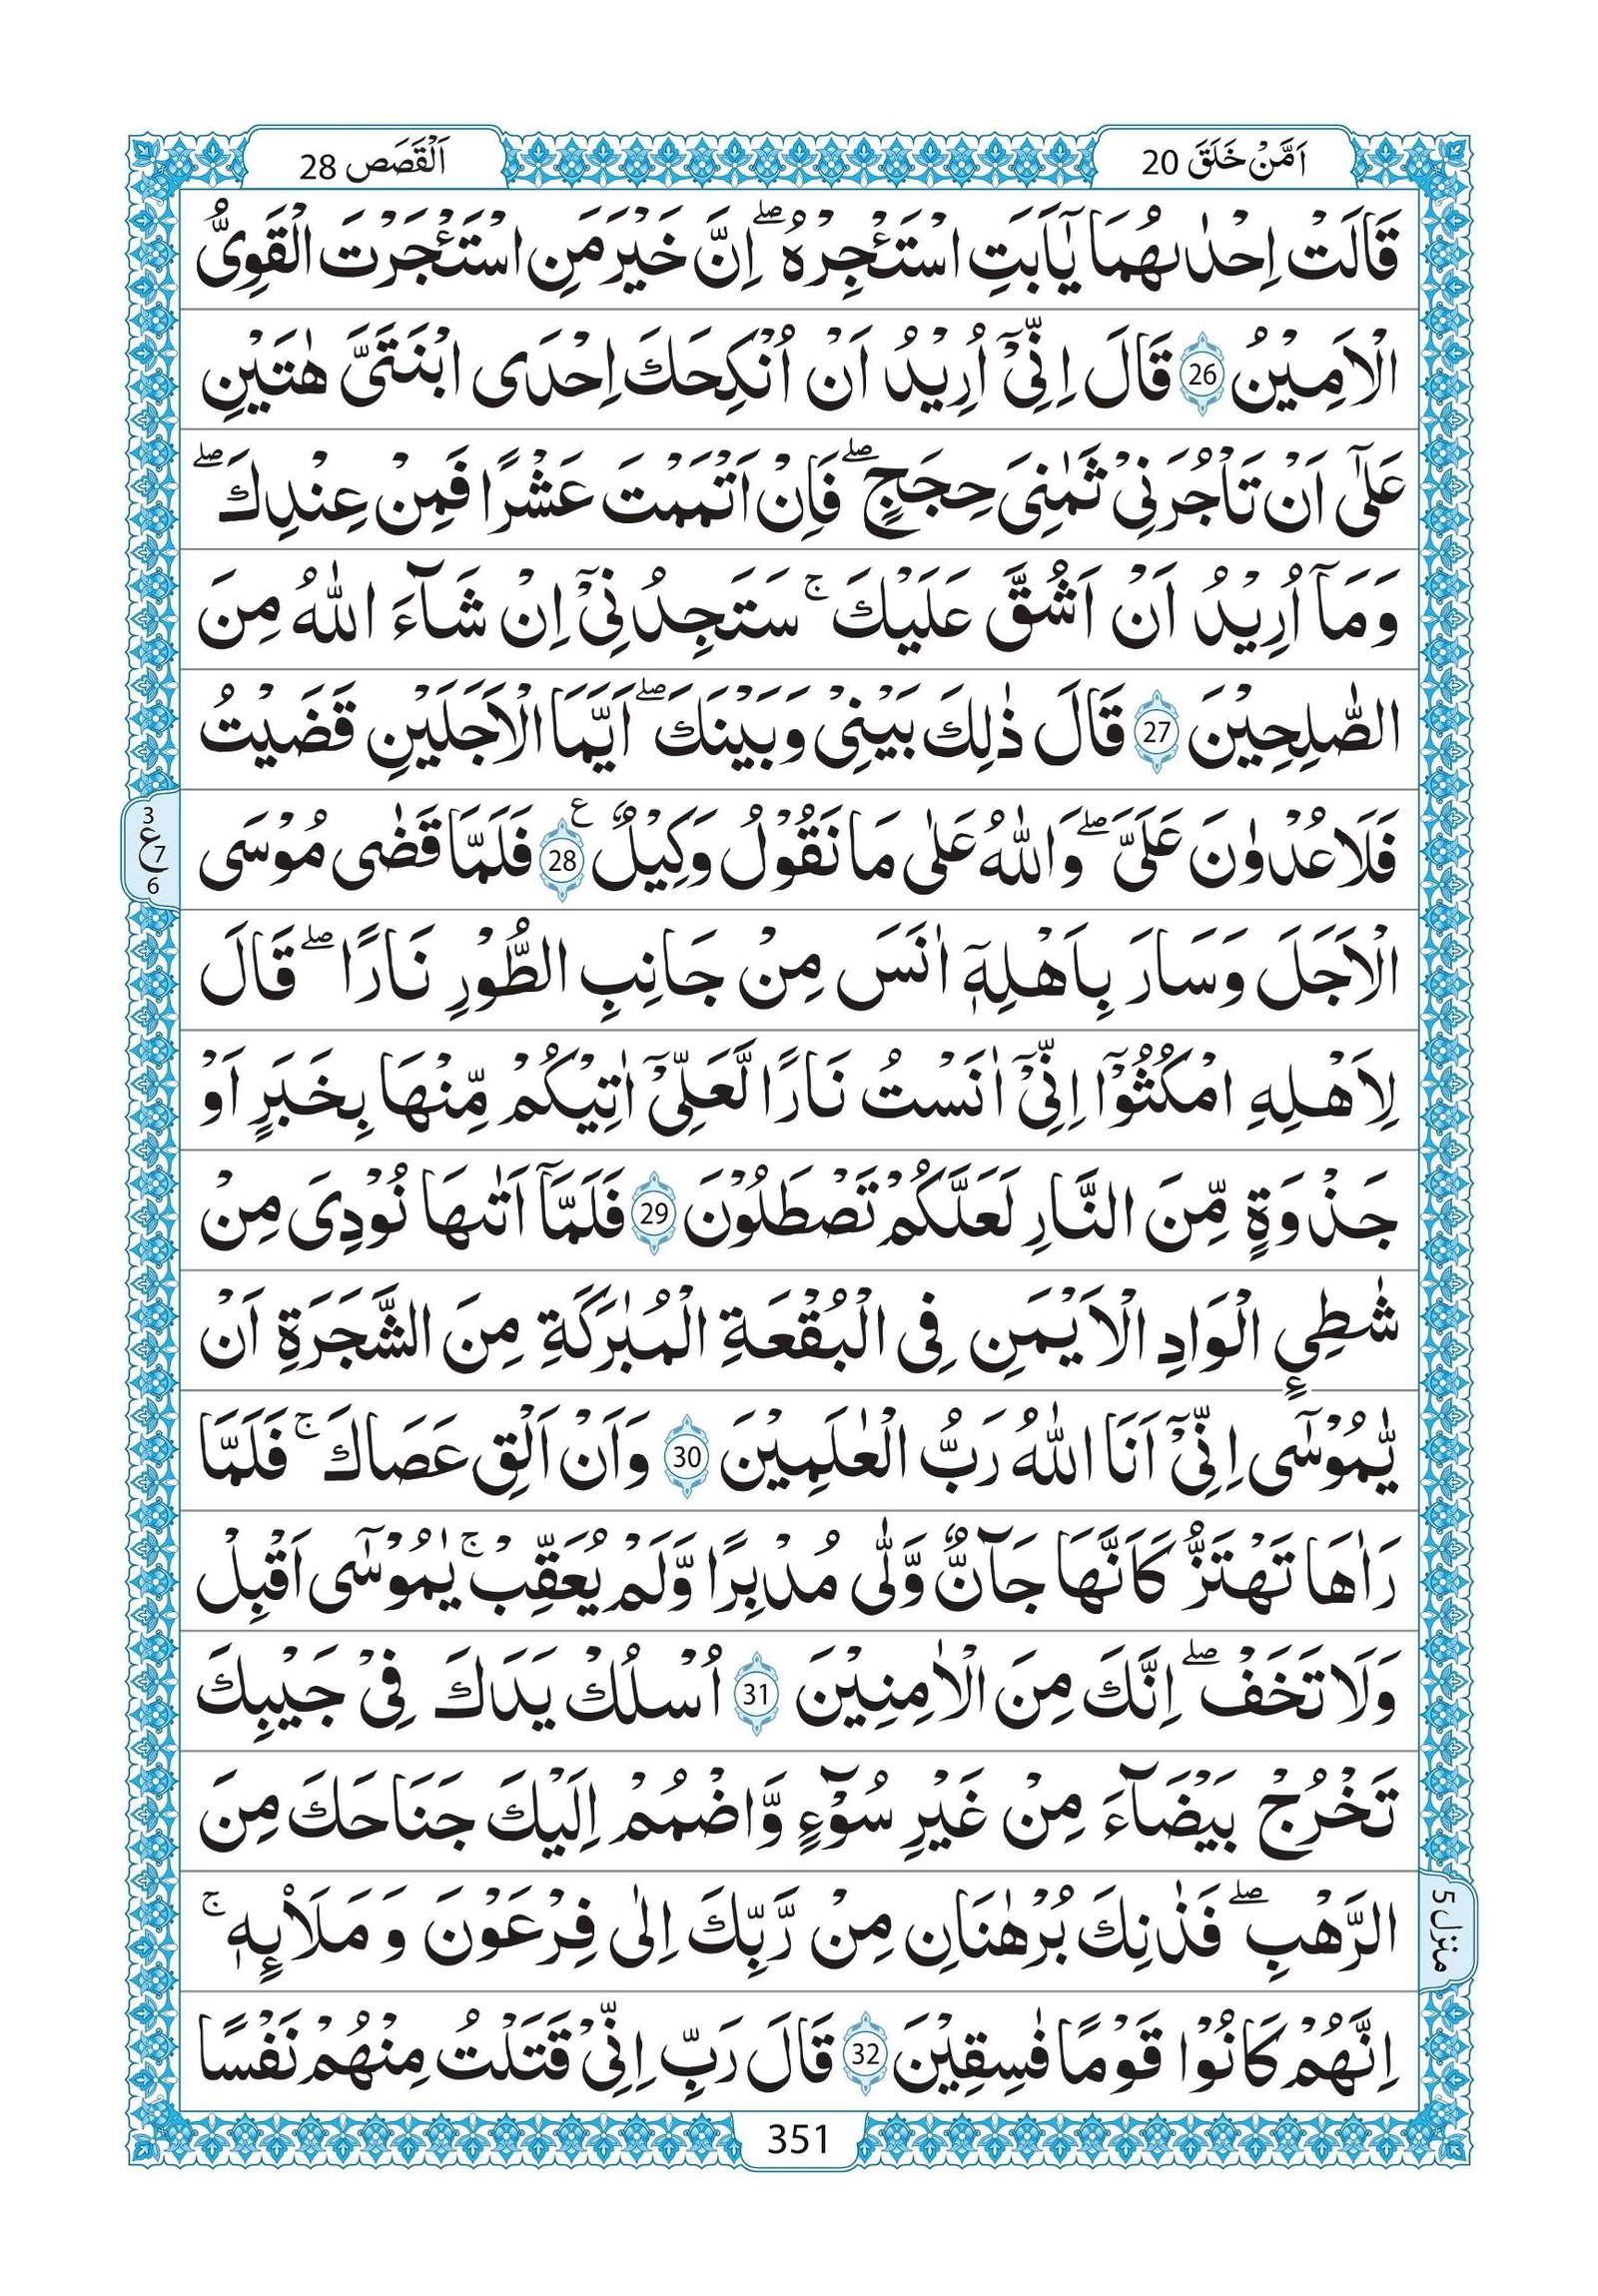 اَمَّنْ خَلَقَ 20
اَلْقَصَص 28
قَالَتْ اِحْدٰىهُمَا يٰۤاَبَتِ اسْتَـْٔجِرْهُ ۖ اِنَّ خَيْرَ مَنِ اسْتَـْٔجَرْتَ الْقَوِىُّ
الْاَمِيْنُ 26 قَالَ اِنِّىْۤ اُرِيْدُ اَنْ اُنْكِحَكَ اِحْدَى ابْنَتَىَّ هٰتَيْنِ
عَلٰۤى اَنْ تَاْجُرَنِىْ ثَمٰنِىَ حِجَجٍ ۖ فَاِنْ اَتْمَمْتَ عَشْرًا فَمِنْ عِنْدِكَ ۖ
وَمَاۤ اُرِيْدُ اَنْ اَشُقَّ عَلَيْكَ ۚ سَتَجِدُنِىْۤ اِنْ شَآءَ اللّٰهُ مِنَ
الصّٰلِحِيْنَ 27 قَالَ ذٰلِكَ بَيْنِىْ وَبَيْنَكَ ۖ اَيَّمَا الْاَجَلَيْنِ قَضَيْتُ
فَلَا عُدْوٰنَ عَلَىَّ ۖ وَاللّٰهُ عَلٰى مَا نَقُوْلُ وَكِيْلٌ ع 28 فَلَمَّا قَضٰى مُوْسَى
3 ع 7 6
الْاَجَلَ وَسَارَ بِاَهْلِهٖۤ اٰنَسَ مِنْ جَانِبِ الطُّوْرِ نَارًا ۖ قَالَ
لِاَهْلِهِ امْكُثُوْۤا اِنِّىْۤ اٰنَسْتُ نَارًا لَّعَلِّىْۤ اٰتِيْكُمْ مِّنْهَا بِخَبَرٍ اَوْ
جَذْوَةٍ مِّنَ النَّارِ لَعَلَّكُمْ تَصْطَلُوْنَ 29 فَلَمَّاۤ اَتٰىهَا نُوْدِىَ مِنْ
شٰطِئِ الْوَادِ الْاَيْمَنِ فِى الْبُقْعَةِ الْمُبٰرَكَةِ مِنَ الشَّجَرَةِ اَنْ
يّٰمُوْسٰۤى اِنِّىْۤ اَنَا اللّٰهُ رَبُّ الْعٰلَمِيْنَ 30 وَاَنْ اَلْقِ عَصَاكَ ۚ فَلَمَّا
رَاٰهَا تَهْتَزُّ كَاَنَّهَا جَآنٌّ وَّلّٰى مُدْبِرًا وَّلَمْ يُعَقِّبْ ۚ يٰمُوْسٰۤى اَقْبِلْ
وَلَا تَخَفْ ۖ اِنَّكَ مِنَ الْاٰمِنِيْنَ 31 اُسْلُكْ يَدَكَ فِىْ جَيْبِكَ
تَخْرُجْ بَيْضَآءَ مِنْ غَيْرِ سُوْٓءٍ وَّاضْمُمْ اِلَيْكَ جَنَاحَكَ مِنَ
الرَّهْبِ ۖ فَذٰنِكَ بُرْهٰنَانِ مِنْ رَّبِّكَ اِلٰى فِرْعَوْنَ وَ مَلَا۟ئِهٖ ۚ
منزل 5
اِنَّهُمْ كَانُوْا قَوْمًا فٰسِقِيْنَ 32 قَالَ رَبِّ اِنِّىْ قَتَلْتُ مِنْهُمْ نَفْسًا
351